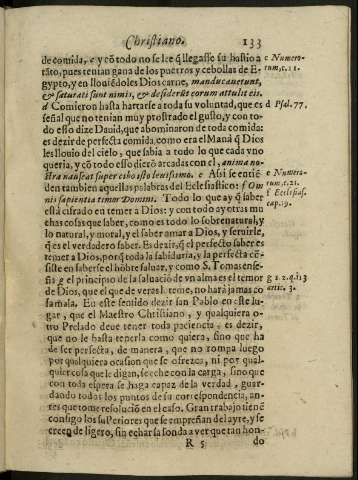 Christiano. 133
de comida, c y cõ todo no se lee q̃ llegasse su hastio a
tãto, pues tenian gana de los puerros y cebollas de E-
gypto, y en llouiẽdoles Dios carne, manducauerunt,
& saturati sunt nimis, & desideriũ eorum attulit eis.
d Comieron hasta hartarse a toda su voluntad, que es
señal que no tenian muy prostrado el gusto, y con to-
do esto dize Dauid, que abominaron de toda comida:
es dezir de perfecta comida, como era el Maná q̃ Dios
les llouio del cielo, que sabia a todo lo que cada vno
queria, y cõ todo esso dierõ arcadas con el, anima no-
stra nauseat super cibo isto leuissimo. e Assi se entiẽ
den tambien aquellas palabras del Eclesiastico: f Om
nis sapientia timor Domini. Todo lo que ay q̃ saber
està cifrado en temer a Dios: y con todo ay otras mu
chas cosas que saber, como es todo lo sobrenatural, y
lo natural, y moral, y el saber amar a Dios, y seruirle,
q̃ es el verdadero saber. Es dezir, q̃ el perfecto saber es
temer a Dios, porq̃ toda la sabiduria, y la perfecta cõ-
siste en saberse el hõbre saluar, y como S. Tomas ense-
ña g el principio de la saluaciõ de vn alma es el temor
de Dios, que el que de veras le teme, no harà jamas co
sa mala. En este sentido dezir san Pablo en este lu-
gar, que el Maestro Christiano, y qualquiera o-
tro Prelado deue tener toda paciencia, es dezir,
que no le basta tenerla como quiera, sino que ha
de ser perfecta, de manera, que no rompa luego
por qualquiera ocasion que se ofrezca, ni por qual-
quier cosa que le digan, se eche con la carga, sino que
con toda espera se haga capaz de la verdad, guar-
dando todas los puntos de su correspondencia, an-
tes que tome resoluciõ en el caso. Gran trabajo tienẽ
consigo los superiores que se empreñan del ayre, y se
creen de ligero, sin echar la sonda a ver que tan hon-
R 5 do
c Nume-
ro-
tum, c. 11.
d Psal. 77.
e Numero-
rum, c. 21.
f Eclesias.
cap. 19.
g 1. 2. q. 113
artic. 3.